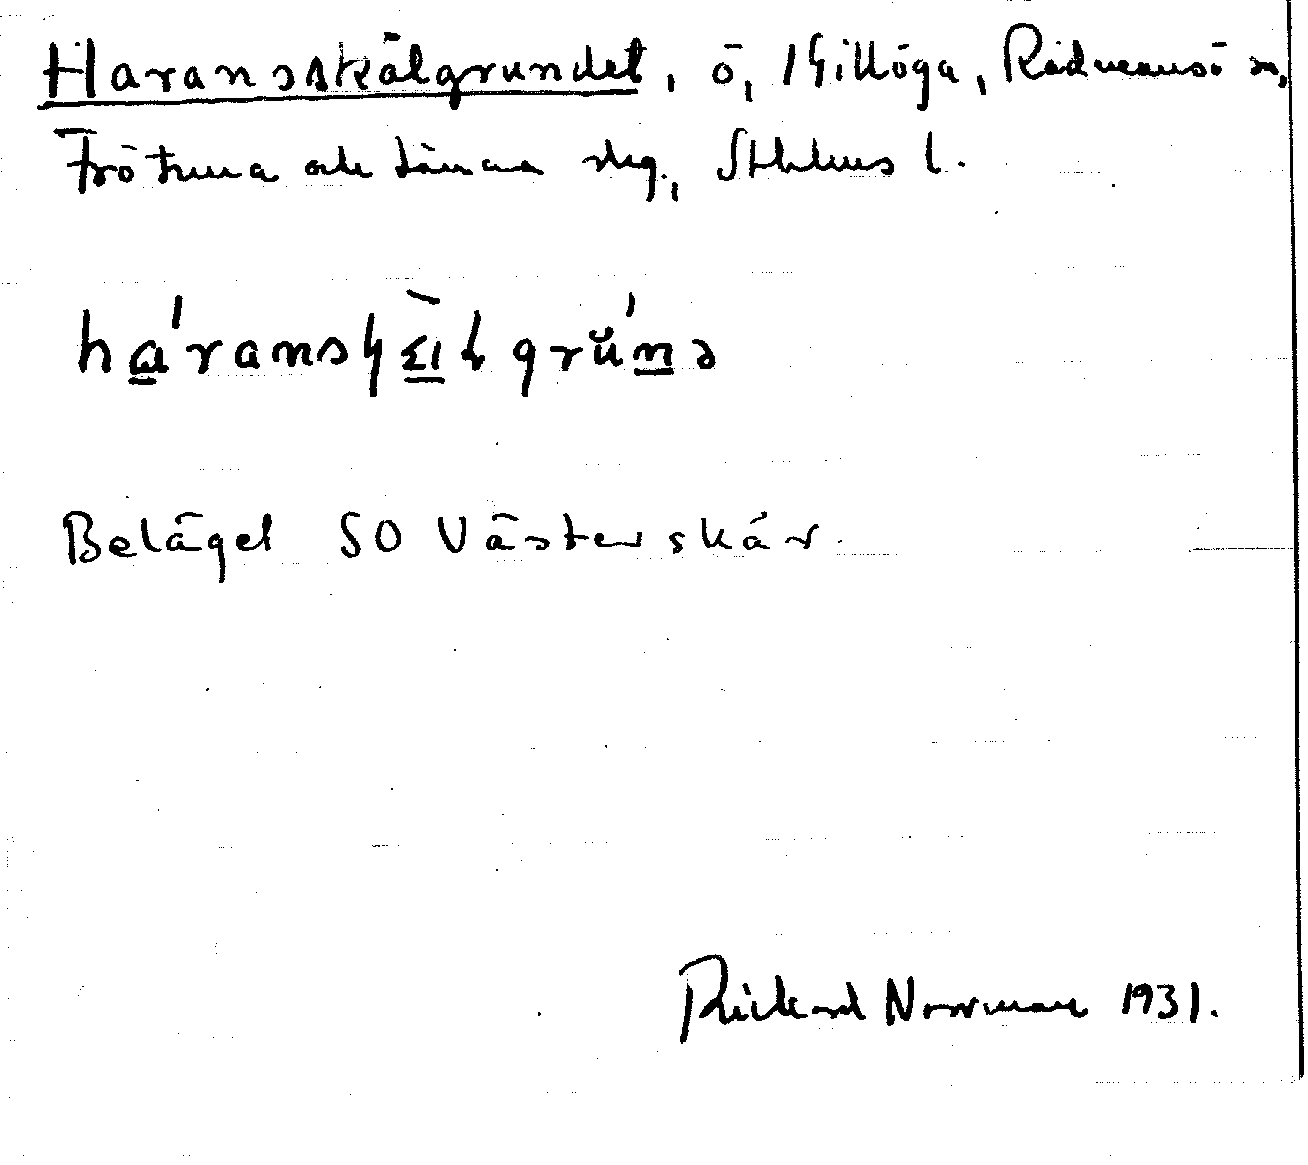 Haransskälgrundet, ö, i Gillöga, Rådmansö sn,
Frötuna och Länna skg., Sthlms l.
Beläget SO Västerskär.
Rickard Norrman 1931.